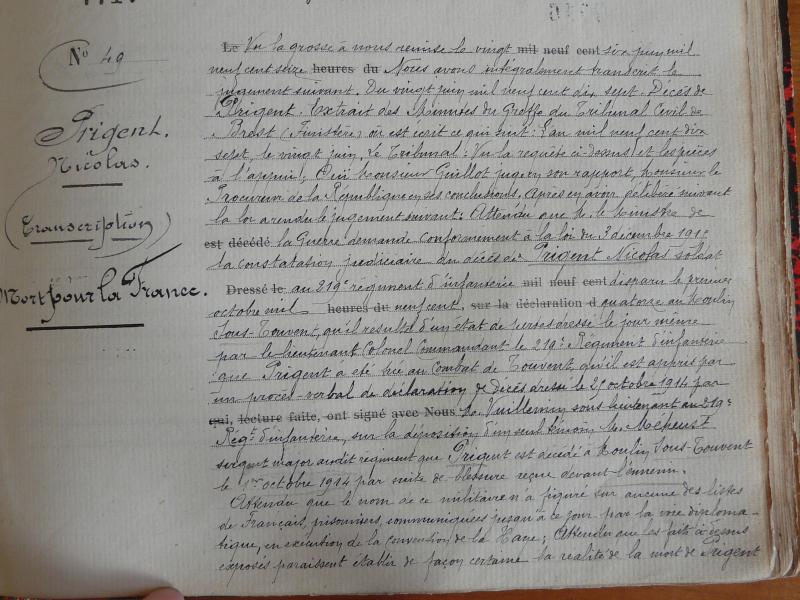 No 49
Prigent.
Nicolas.
(Transcription)
Mort pour la France.
Le Vu la grosse à nous remise le vingt mil neuf cent six juin mil
neuf cent seize heures du Nous avons intégralement transcrit le
jugement suivant. Du vingt juin mil neuf cent dix sept. Décès de
Prigent. Extrait des Minutes du Greffe du Tribunal Civil de
Brest (Finistère) où est écrit ce qui suit: L'an mil neuf cent dix
sept, le vingt juin, Le Tribunal: Vu la requête ci-dessus et les pièces
à l'appui; Oui Monsieur Guillot juge en son rapport, Monsieur le
Procureur de la République en ses conclusions. Après en avoir délibéré suivant
la loi a rendu le jugement suivant: Attendu que M. le Ministre de
est décédé la Guerre demande conformément à la loi du 3 décembre 1915
la constatation judiciaire du décès de Prigent Nicolas soldat
Dressé le au 219e régiment d'infanterie mil neuf cent disparu le premier
octobre mil heures du neuf cent, sur la déclaration d quatorze au Moulin
Sous-Touvent, qu'il résulte d'un état de pertes dressé le jour même
par le lieutenant Colonel Commandant le 219e Régiment d'infanterie
que Prigent a été tué au Combat de Touvent, qu'il est appris par
un procès-verbal de déclaration de décès dressé le 25 octobre 1914 par
qui, lecture faite, ont signé avec Nous Le Vuillemin sous lieutenant au 219e
Régt d'infanterie, sur la déposition d'un seul témoin le
sergent major audit régiment que Prigent est décédé à Moulin Sous-Touvent
le 1er octobre 1914 par suite de blessure reçue devant l'ennemi.
Attendu que le nom de ce militaire n'a figuré sur aucune des listes
de Français, prisonniers, communiquées jusqu'à ce jour par la voie diploma-
tique, en exécution de la convention de la Haye; Attendu que les faits ci-dessus
exposés paraissent établir de façon certaine la réalité de la mort de Prigent